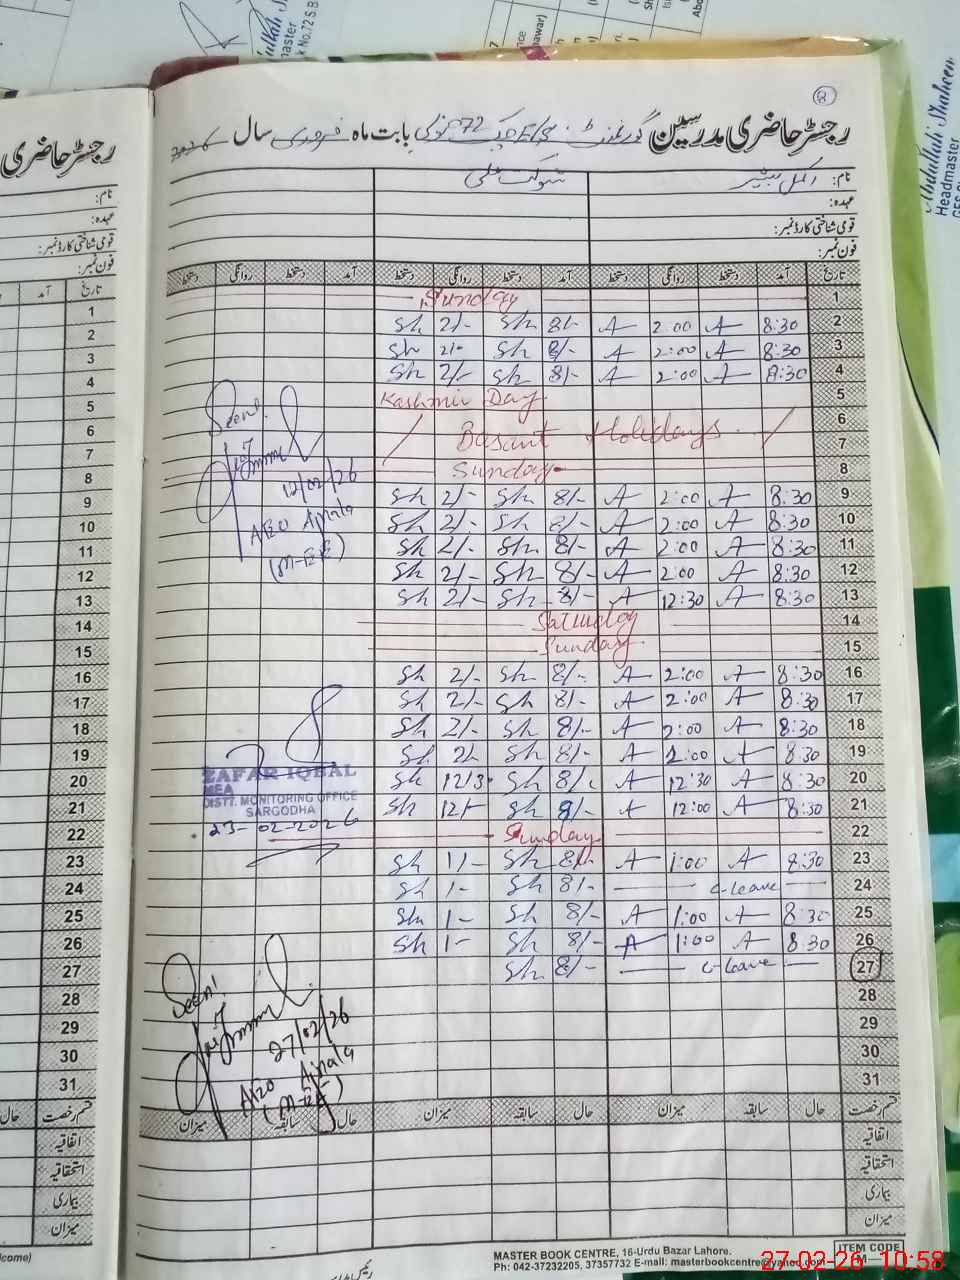 رجسٹر حاضری مدرسین گورنمنٹ 72 بابت ماہ فروری سال 2026
نام: اکمل بشیر شوکت علی
عہدہ:
قومی شناختی کارڈ نمبر:
فون نمبر:
تاریخ آمد دستخط روانگی دستخط آمد دستخط روانگی دستخط آمد دستخط روانگی دستخط
1 Sunday
2 8:30 A 2:00 A 8/- Sh 2/- Sh
3 8:30 A 2:00 A 8/- Sh 2/- Sh
4 8:30 A 2:00 A 8/- Sh 2/- Sh
5 Kashmir Day
6
7 Basant Holidays
8 Sunday
9 8:30 A 2:00 A 8/- Sh 2/- Sh
10 8:30 A 2:00 A 8/- Sh 2/- Sh
11 8:30 A 2:00 A 8/- Sh 2/- Sh
12 8:30 A 2:00 A 8/- Sh 2/- Sh
13 8:30 A 12:30 A 8/- Sh 2/- Sh
14 Saturday
15 Sunday
16 8:30 A 2:00 A 8/- Sh 2/- Sh
17 8:30 A 2:00 A 8/- Sh 2/- Sh
18 8:30 A 2:00 A 8/- Sh 2/- Sh
19 8:30 A 2:00 A 8/- Sh 2/- Sh
20 8:30 A 12:30 A 8/- Sh 12/3 Sh
21 8:30 A 12:00 A 8/- Sh 12/- Sh
22 Sunday
23 8:30 A 1:00 A 8/- Sh 1/- Sh
24 c-leave 8/- Sh 1- Sh
25 8:30 A 1:00 A 8/- Sh 1- Sh
26 8:30 A 1:00 A 8/- Sh 1- Sh
27 c-leave 8/- Sh
28
29
30
31
قسم رخصت حال سابقہ میزان حال سابقہ میزان حال سابقہ میزان
اتفاقیہ
استحقاقیہ
بیماری
میزان
Seen!
12/02/26
AEO Ajnala
(M-EE)
ZAFAR IQBAL
MEA
DISTT. MONITORING OFFICE
SARGODHA
23-02-2026
Seen!
27/02/26
AEO Ajnala
(M-EE)
MASTER BOOK CENTRE, 16-Urdu Bazar Lahore.
Ph: 042-37232205, 37357732 E-mail: masterbookcentre@yahoo.com
ITEM CODE
رجسٹر حاضری
نام:
عہدہ:
قومی شناختی کارڈ نمبر:
فون نمبر:
تاریخ آمد
1
2
3
4
5
6
7
8
9
10
11
12
13
14
15
16
17
18
19
20
21
22
23
24
25
26
27
28
29
30
31
قسم رخصت حال
اتفاقیہ
استحقاقیہ
بیماری
میزان
Abdullah Shaheen
Headmaster
27-02-26 10:58